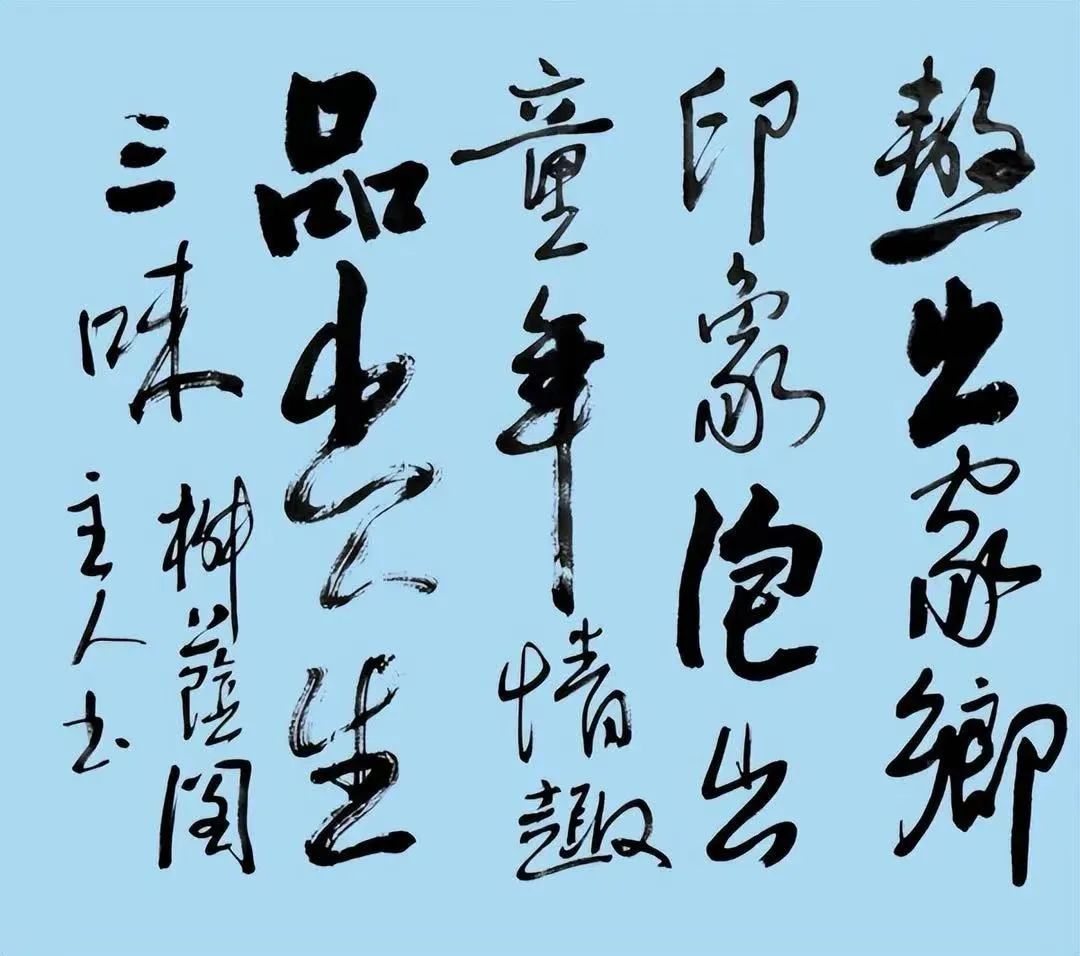 熬出家鄉
印象泡出
童年情趣
品出人生
三味
蔭阁
主人书